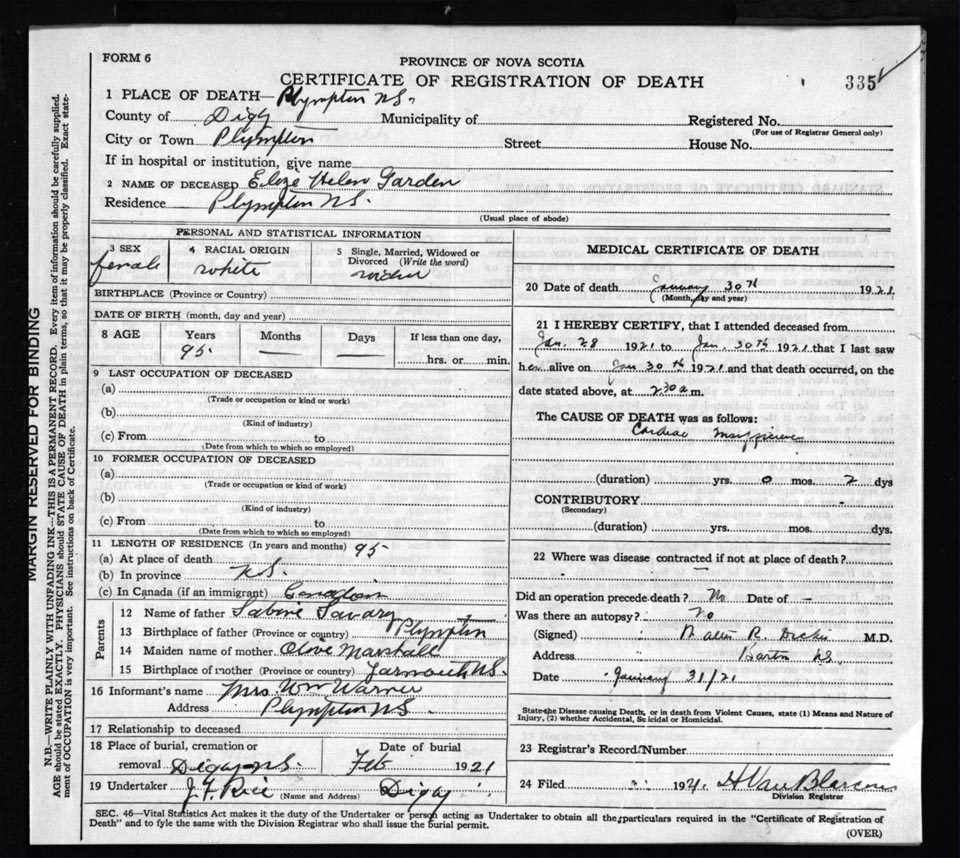 FORM 6
PROVINCE OF NOVA SCOTIA
CERTIFICATE OF REGISTRATION OF DEATH
335
1 PLACE OF DEATH— Plympton N.S.
County of Digby Municipality of Registered No.
(For use of Registrar General only)
City or Town Plympton Street House No.
If in hospital or institution, give name
2 NAME OF DECEASED Helen Garden
Residence Plympton N.S.
(Usual place of abode)
PERSONAL AND STATISTICAL INFORMATION
3 SEX female
4 RACIAL ORIGIN white
5 Single, Married, Widowed or Divorced (Write the word)
BIRTHPLACE (Province or Country)
DATE OF BIRTH (month, day and year)
8 AGE Years 95 Months — Days — If less than one day, hrs. or min.
9 LAST OCCUPATION OF DECEASED
(a)
(Trade or occupation or kind or work)
(b)
(Kind of industry)
(c) From to
(Date from which to which so employed)
10 FORMER OCCUPATION OF DECEASED
(a)
(Trade or occupation or kind or work)
(b)
(Kind of industry)
(c) From to
(Date from which to which so employed)
11 LENGTH OF RESIDENCE (In years and months) 95
(a) At place of death
(b) In province N.S.
(c) In Canada (if an immigrant) Canadian
Parents
12 Name of father Sabine Savary
13 Birthplace of father (Province or country) Plympton
14 Maiden name of mother Olove Marshall
15 Birthplace of mother (Province or country) Yarmouth N.S.
16 Informant's name Mrs. Wm Warner
Address Plympton N.S.
17 Relationship to deceased
18 Place of burial, cremation or removal Digby N.S. Date of burial Feb 1921
19 Undertaker J. F. Rice (Name and Address) Digby
MEDICAL CERTIFICATE OF DEATH
20 Date of death January 30th 1921
(Month, day and year)
21 I HEREBY CERTIFY, that I attended deceased from
Jan. 28 1921 to Jan. 30th 1921 that I last saw
her alive on Jan 30th 1921 and that death occurred, on the
date stated above, at 2.30 a m.
The CAUSE OF DEATH was as follows:
Cardiac
(duration) yrs. 0 mos. 2 dys
CONTRIBUTORY
(Secondary)
(duration) yrs. mos. dys.
22 Where was disease contracted if not at place of death?
Did an operation precede death? No Date of —
Was there an autopsy? No
(Signed) Walter R. Dickie M.D.
Address Barton N.S.
Date January 31/21
State the Disease causing Death, or in death from Violent Causes, state (1) Means and Nature of
Injury, (2) whether Accidental, Suicidal or Homicidal.
23 Registrar's Record Number
24 Filed 1921. H Van Blarcom
Division Registrar
SEC. 46—Vital Statistics Act makes it the duty of the Undertaker or person acting as Undertaker to obtain all the particulars required in the "Certificate of Registration of
Death" and to fyle the same with the Division Registrar who shall issue the burial permit.
(OVER)
MARGIN RESERVED FOR BINDING
N.B.—WRITE PLAINLY WITH UNFADING INK—THIS IS A PERMANENT RECORD. Every item of information should be carefully supplied.
AGE should be stated EXACTLY. PHYSICIANS should STATE CAUSE OF DEATH in plain terms, so that it may be properly classified. Exact state-
ment of OCCUPATION is very important. See instructions on back of Certificate.